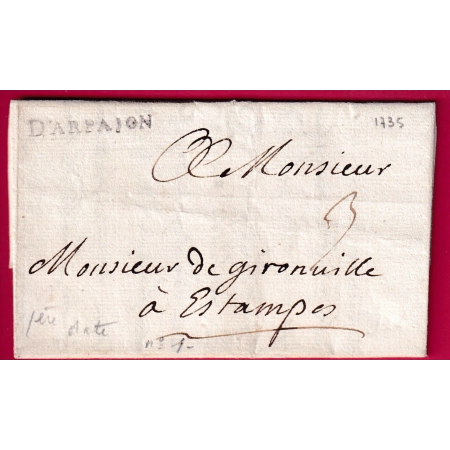 D'ARPAJON
1735
A Monsieur
3
Monsieur de gironville
à Estampes
1ère
date
n° 1-